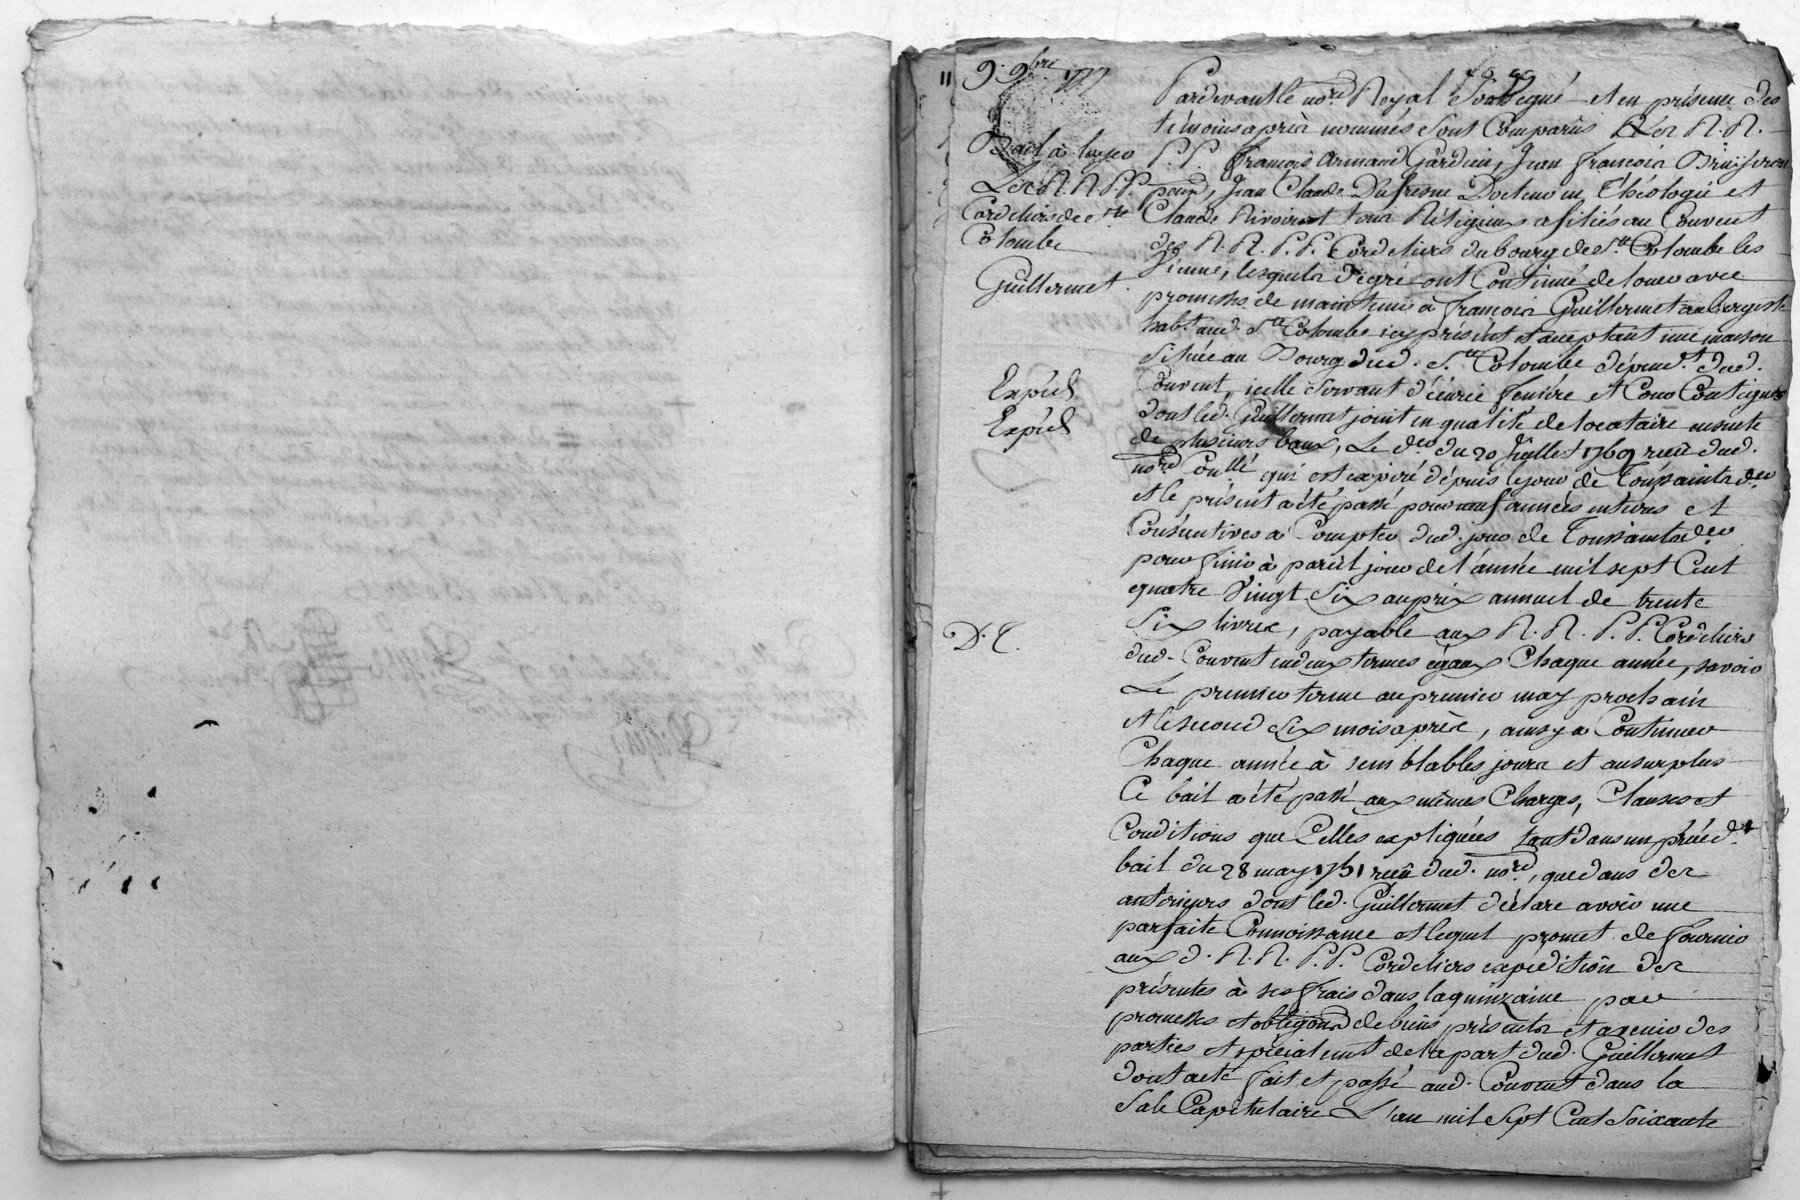 11 9. 9bre 1777
Bail à loyer
Les R.R.P.P.
Cordeliers de Ste
Colombe
Guillermet
Expéd
Expéd
D. C.
Pardevant le nore Royal Soussigné et en présence des
témoins après nommés sont Comparus Les R.R.
P.P. françois armand Gardien, Jean françois
Jean Claude Dufresne Docteur en Théologie et
Claude Rivoiront tous Réligieux afiliés au Couvent
des R. R. P. P. Cordeliers du bourg de Ste Colombe les
Vienne, lesquels dégré ont Continué de louer avec
promesses de maintenir à françois Guillermet aubergiste
habt aud. Ste Colombe icy présent et acceptant une maison
située au Bourg dud. Ste Colombe dépendt dud.
Couvent, icelle servant d'écurie fenière et Cour Contigues
dont led. Guillermet jouit en qualité de locataire ensuite
de plusieurs baux, Le der du 20 Juillet 1769 reçû dud.
nore qui est expiré dépuis le jour de Toussaints der
et le présent a été passé pour neuf années entières et
Consécutives à Compter dud. jour de Toussaints der
pour finir à pareil jour de l'année mil sept Cent
quatre Vingt Six au prix annuel de trente
Six livres, payable aux R. R. P. P. Cordeliers
dud. Couvent en deux termes égaux Chaque année, savoir
Le premier terme au premier may prochain
et le second six mois après, ainsy a Continuer
Chaque année à semblables jours et au surplus
Ce bail a été passé aux mêmes Charges, Clauses et
Conditions que Celles expliquées tant dans un précédt
bail du 28 may 1751 reçû dud. nore, que dans des
antérieurs dont led. Guillermet déclare avoir une
parfaite Connoissance et lequel promet de fournir
aux d. R. R. P. P. Cordeliers expédition des
présentes à ses frais dans la quinzaine par
promesses et obligons de biens présents et avenir des
parties et spécialement de la part dud. Guillermet
dont acte fait et passé aud. Couvent dans la
Sale Capitulaire L'an mil sept Cent Soixante